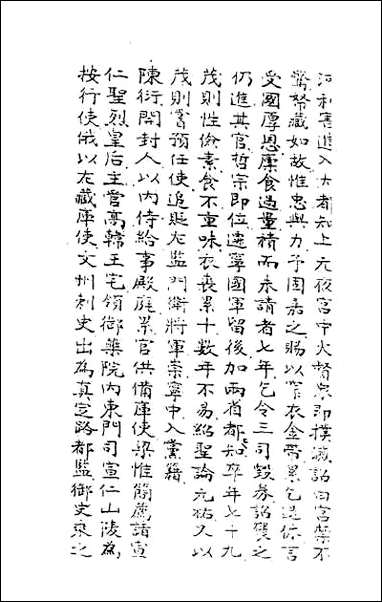 江利害進入大都知上元夜宮中火督眾即撲滅詔曰宮禁不
驚帑藏如故惟忠與力予固嘉之賜以窄衣金帶累乞退休言
受國厚恩廩食過量積而未請者七年乞令三司毀券詔褒之
仍進其官哲宗即位遷寧國軍留後加兩省都知卒年七十九
茂則性儉素食不重味衣裘累十數年不易紹聖論元祐人以
茂則嘗預任使追貶左監門衛將軍崇寧中入黨籍
陳衍開封人以內侍給事殿庭累官供備庫使梁惟簡薦諸宣
仁聖烈皇后主管高韓王宅領御藥院內東門司宣仁山陵為
按行使俄以左藏庫使文州刺史出為真定路都監御史來之